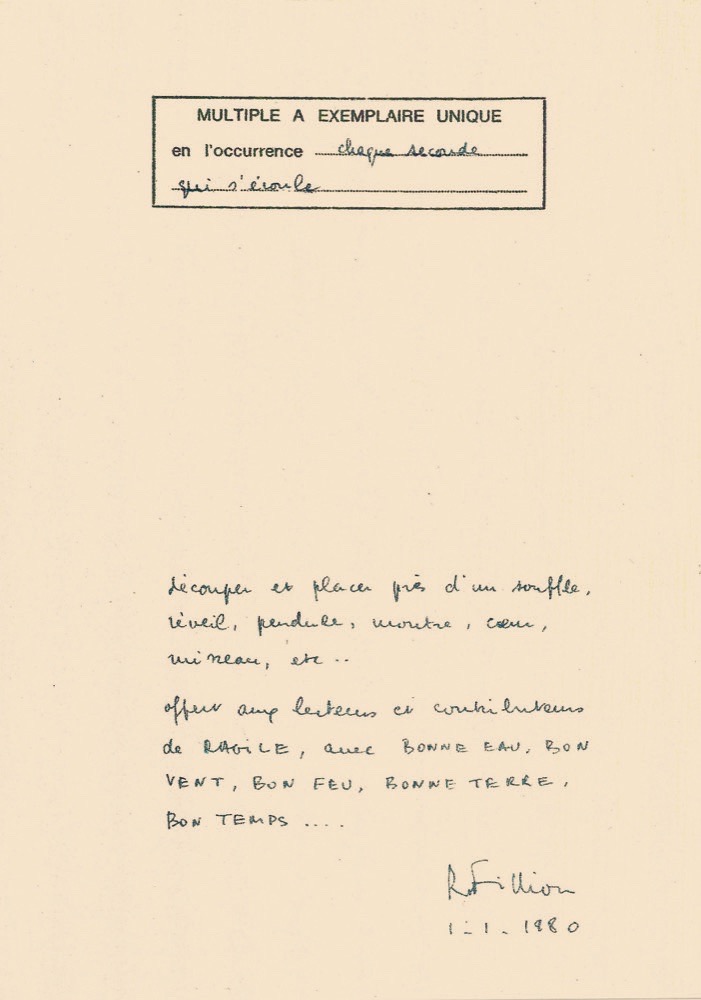 MULTIPLE A EXEMPLAIRE UNIQUE
en l'occurrence chaque seconde
qui s'écoule
découper et placer près d'un souffle,
réveil, pendule, montre, cœur,
etc ..
offert aux lecteurs et contributeurs
de RAGILE, avec BONNE EAU, BON
VENT, BON FEU, BONNE TERRE,
BON TEMPS ....
R. Fillion
1.1.1980